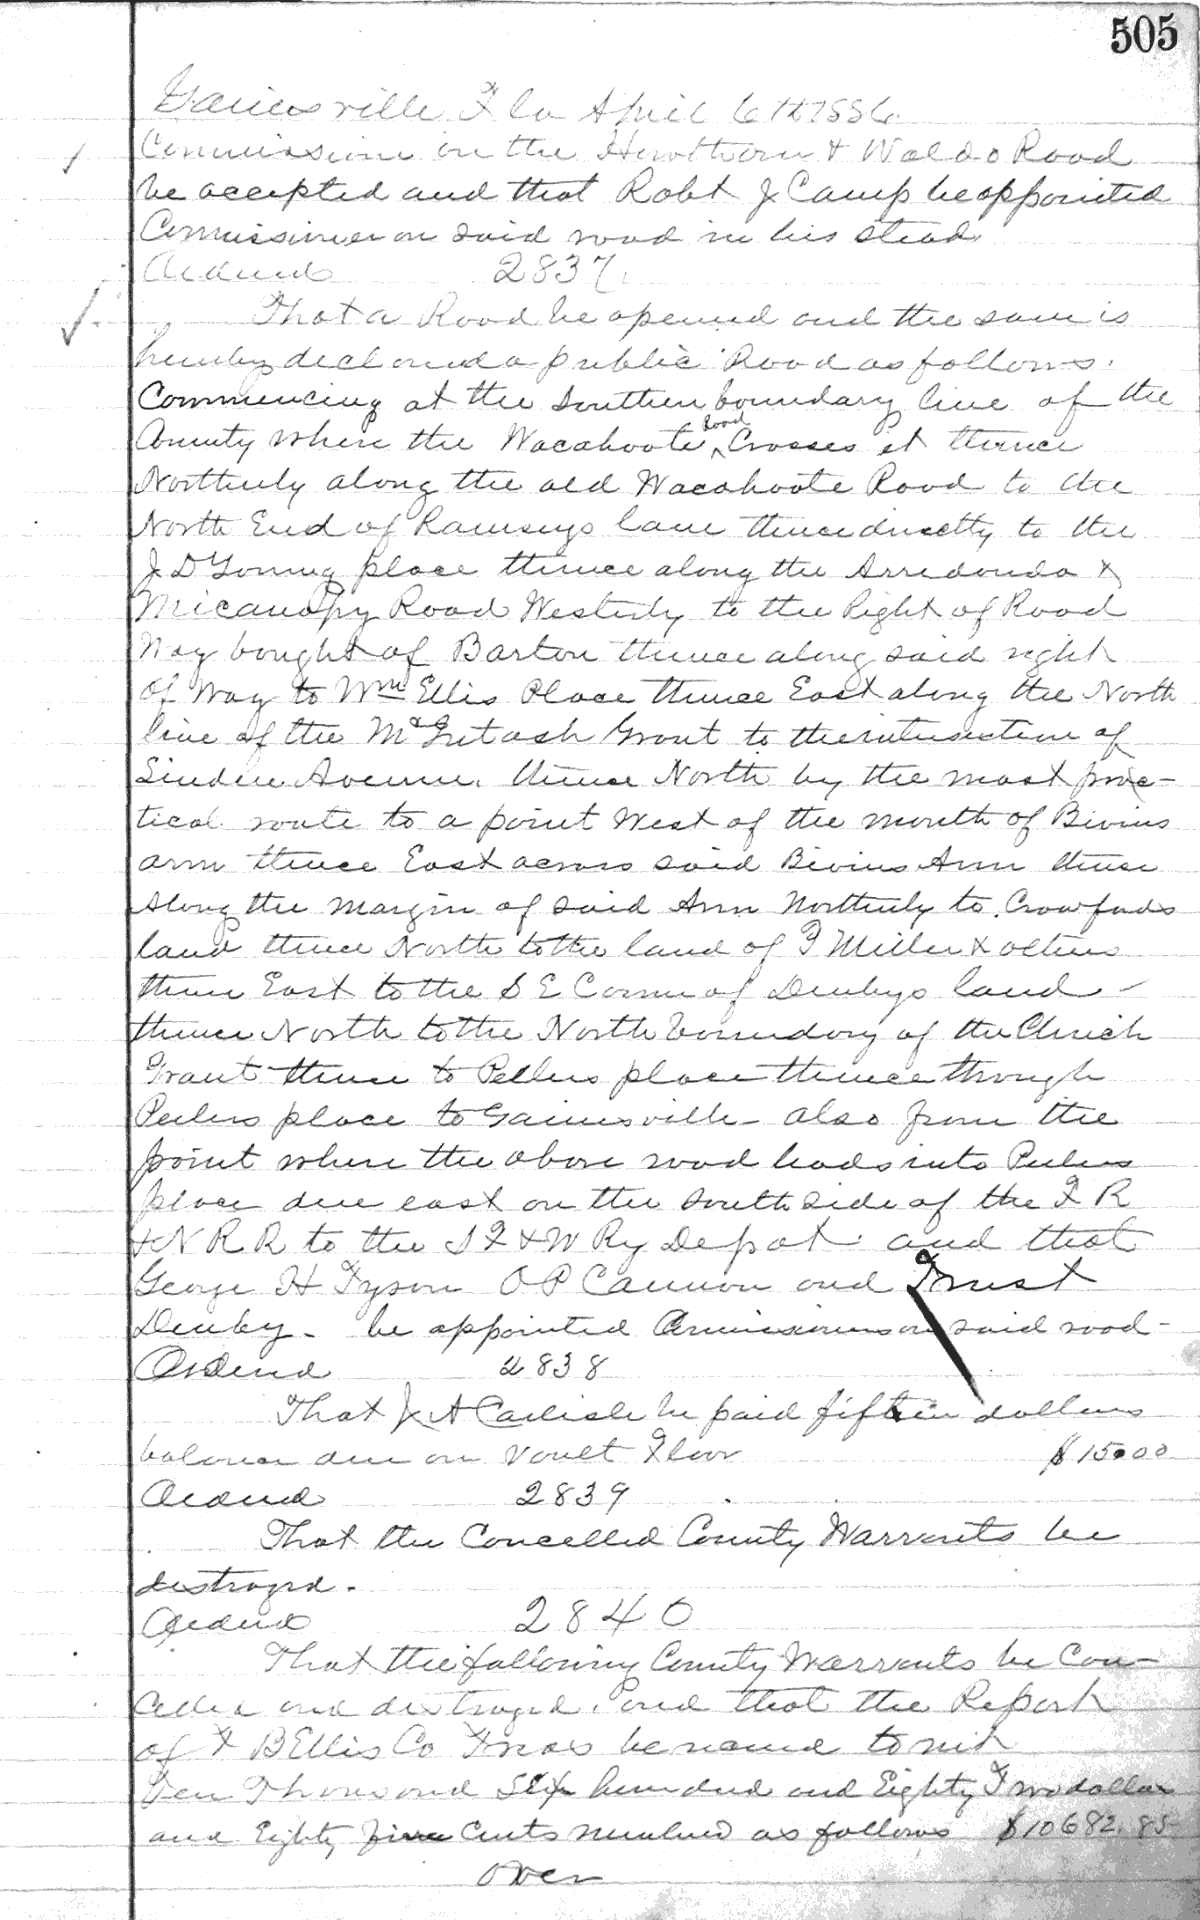 505
Gainesville Fla April 6th 1886
Commissioner on the Hawthorn & Waldo Road
be accepted and that Robt J Camp be appointed
Commissioner on said road in his stead.
Ordered 2837.
That a Road be opened and the same is
hereby declared a public Road as follows.
Commencing at the Southern boundary line of the
County where the Wacahoota Road Crosses it thence
Northerly along the old Wacahoota Road to the
North End of Ramseys lane thence directly to the
J D Young place thence along the Arredonda &
Micanopy Road Westerly to the Right of Road
Way bought of Barton thence along said right
of Way to Wm Ellis Place thence East along the North
line of the McIntosh Grant to the intersection of
Linden Avenue. thence North by the most prac-
tical route to a point West of the mouth of Bivins
arm thence East across said Bivins Arm thence
along the margin of said Arm Northerly to Crawfords
land thence North to the land of F Miller & others
thence East to the S E Corner of Denbys land -
thence North to the North boundary of the Chirch
Grant thence to Peelers place thence through
Peelers place to Gainesville - also from the
point where the above road leads into Peelers
place due east on the south side of the F R
& N R R to the S F & W Ry Depot and that
George H Tyson O P Cannon and Trust
Denby - be appointed Commissioners on said road -
Ordered 2838
That J A Carlisle be paid fifteen dollars
balance due on Vault Floor $15.00
Ordered 2839
That the Cancelled County Warrants be
destroyed.
Ordered 2840
That the following County Warrants be Can-
celled and destroyed. and that the Report
of F B Ellis Co Treas be received to wit
Ten Thousand Six hundred and Eighty Two dollars
and Eighty five Cents received as follows $10682.85
Over